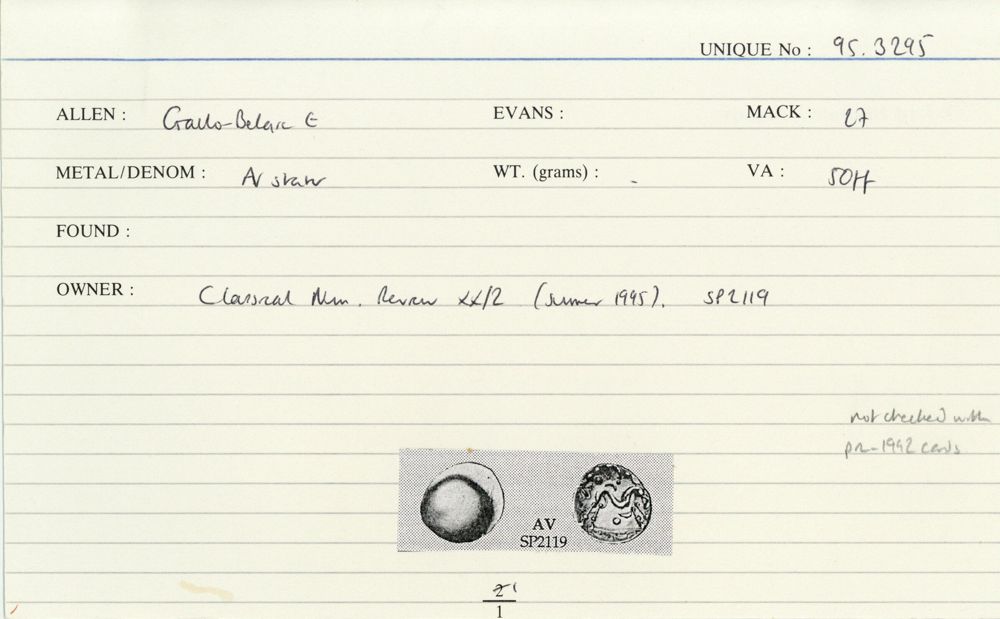 UNIQUE No : 95.3295
ALLEN : Gallo-Belgic E EVANS : MACK : 27
METAL/DENOM : AV stater WT. (grams) : - VA : 50ff
FOUND :
OWNER : Classical Num. Review XX/2 (summer 1995). SP2119
not checked with
pre-1992 cards
AV
SP2119
1